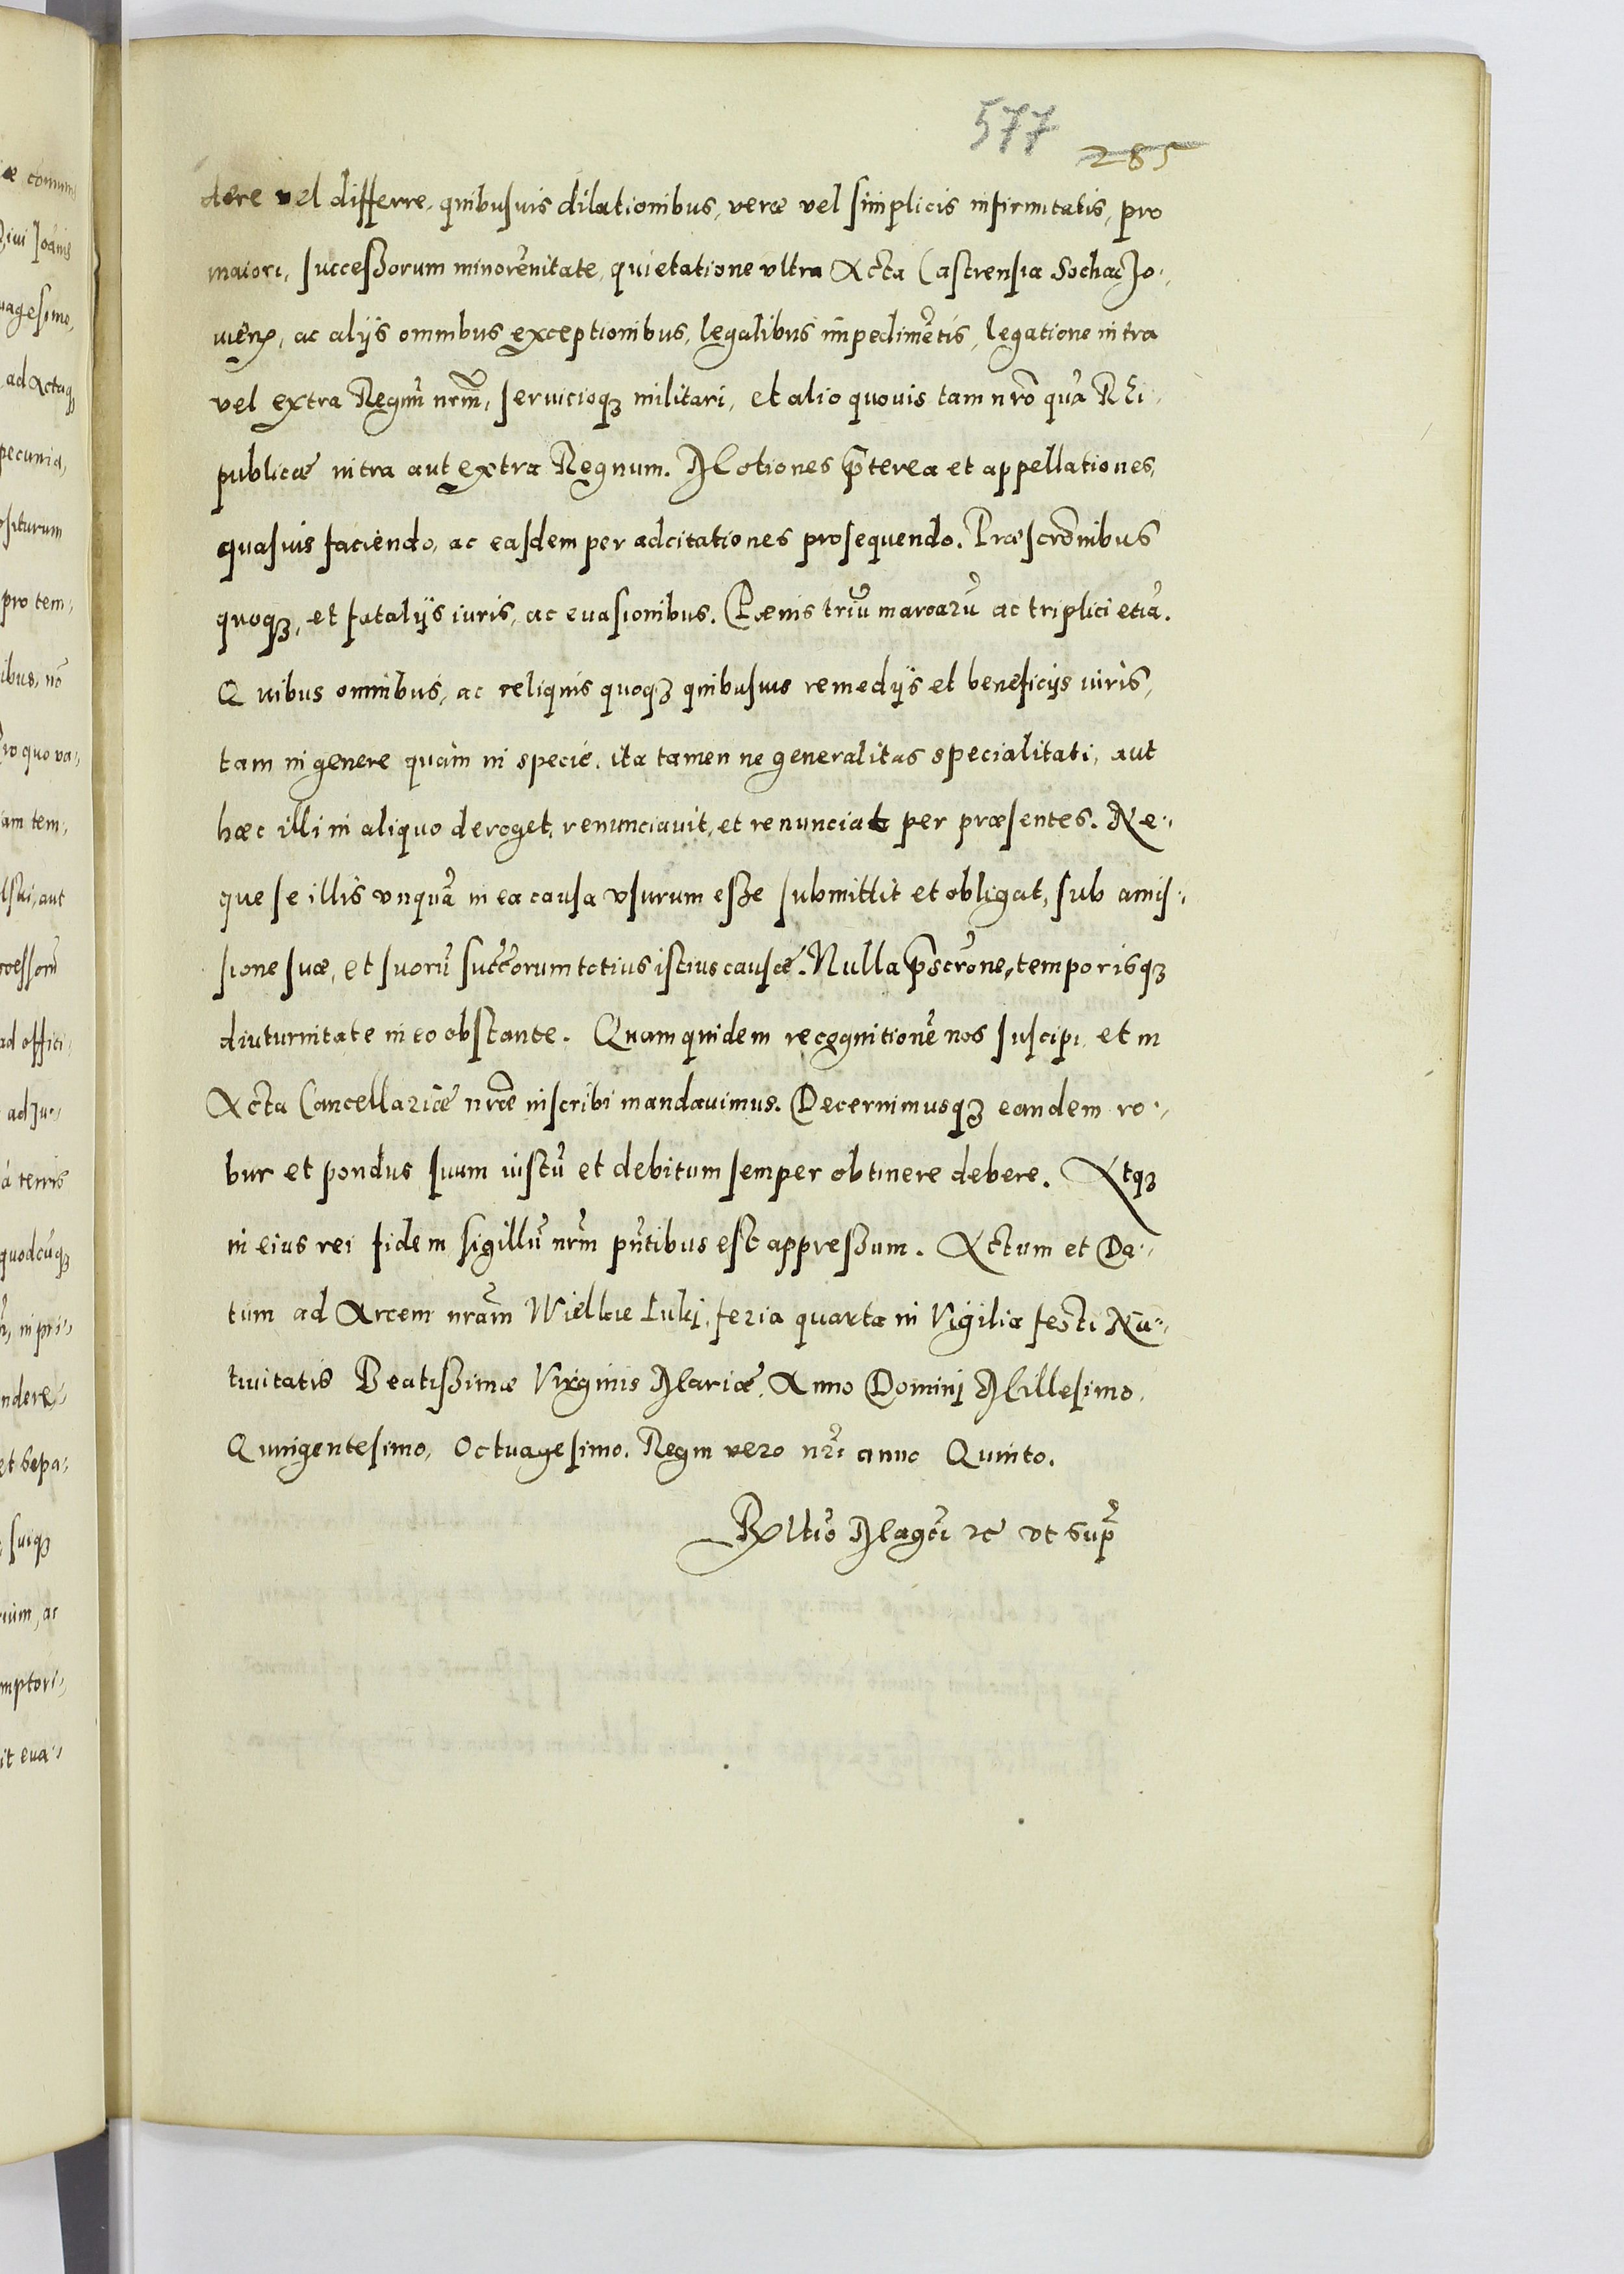 577
285
dere vel differre, quibusuis dilationibus, veræ vel simplicis infirmitatis, pro
maiori, successorum minorēnitate, quietatione vltra Acta Castrensia Sochaczo-
uieñ, ac alijs omnibus exceptionibus, legalibus impedimētis, legatione intra
vel extra Regnū nr̄m, seruicioq₃ militari, et alio quouis tam nr̄o quā Rei-
publicæ intra aut extra Regnum. Motiones p̄terea et appellationes,
quasuis faciendo, ac easdem per adcitationes prosequendo. Præscr̄onibus
quoq₃, et fatalijs iuris, ac euasionibus. Pœnis triū marcarū ac triplici etiā.
Quibus omnibus, ac reliquis quoq₃ quibusuis remedijs et beneficijs iuris,
tam in genere quàm in specie. ita tamen ne generalitas specialitati, aut
hæc illi in aliquo deroget, renunciauit, et renunciat per præsentes. Ne-
que se illis vnquā in ea causa vsurum esse submittit et obligat, sub amis-
sione suæ, et suorū succ̄orum totius istius causæ. Nulla p̄scr̄one, temporisq₃
diuturnitate in eo obstante. Quam quidem recognitionē nos suscipi et in
Acta Cancellariæ nr̄æ inscribi mandauimus. Decernimusq₃ eandem ro-
bur et pondus suum iustū et debitum semper obtinere debere. Atq₃
in eius rei fidem sigillū nr̄m pn̄tibus est appressum. Actum et Da-
tum ad Arcem nr̄am Wielkie Luki, feria quarta in Vigilia festi Na-
tiuitatis Beatissimæ Virginis Mariæ, Anno Domini Millesimo,
Quingentesimo, Octuagesimo. Regni vero nr̄i anno Quinto.
Rl̄tio Mag̃ci ꝛc vt sup̄
æ comm
Diui Joānis
uagesimo,
ad Actaq₃
pecunia,
ositurum
pro tem-
ibus, nō
Pro quo va-
am tem-
aut
cessorū
ad offiti-
à terris
quodcūq₃
in pri-
ndere
et sepa-
suiq₃
rium, ac
mptori-
it eua-